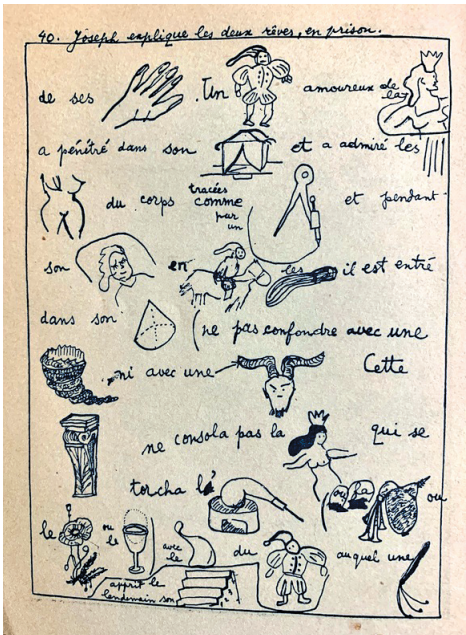 40. Joseph explique les deux rêves, en prison.
de ses . Un amoureux de la
a pénétré dans son et a admiré les
du corps tracées comme par un et pendant
son en les il est entré
dans son (ne pas confondre avec une
ni avec une Cette
ne consola pas la qui se
torcha l' ou la ou
le ou le avec le du auquel une
apprit le lendemain son